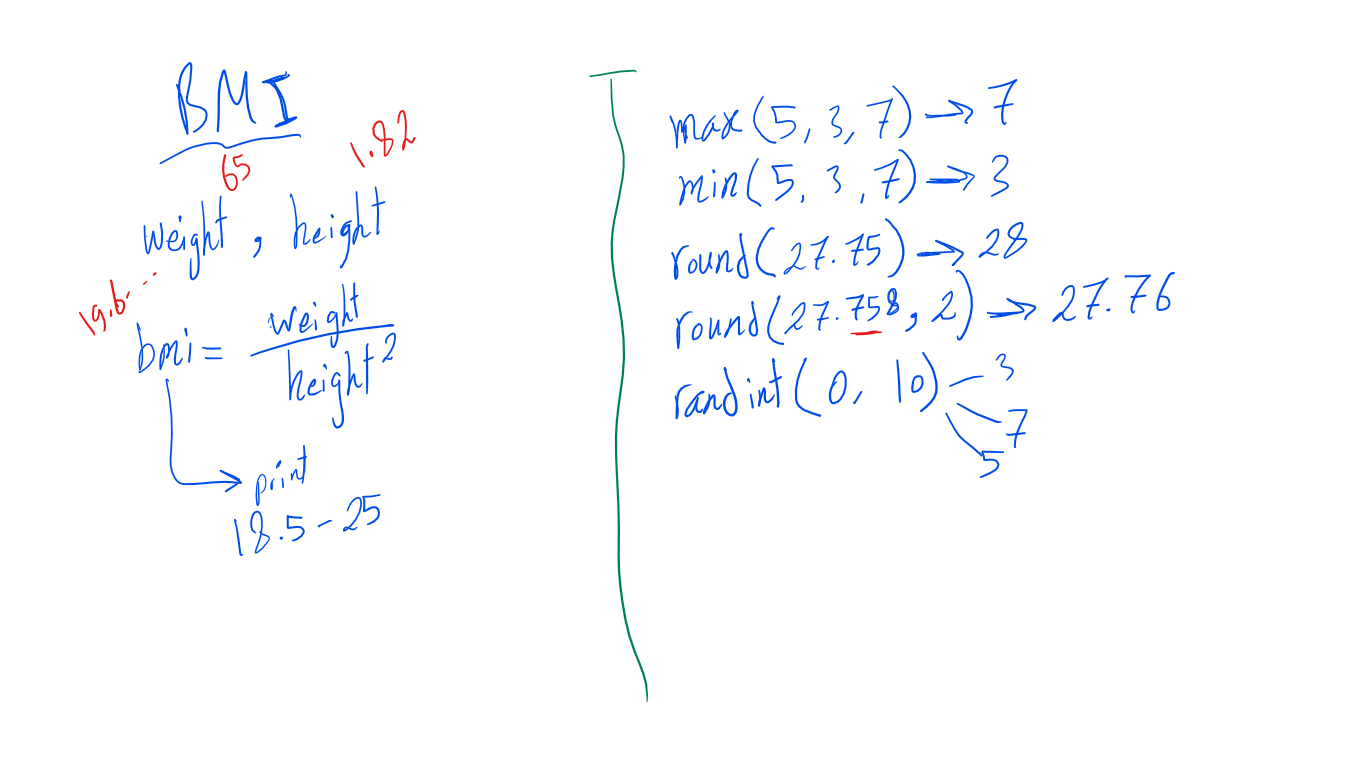 BMI
65
1.82
weight, height
19.6...
bmi = weight
height²
print
18.5 - 25
max(5, 3, 7) → 7
min(5, 3, 7) → 3
round(27.75) → 28
round(27.758, 2) → 27.76
randint(0, 10) 3
7
5